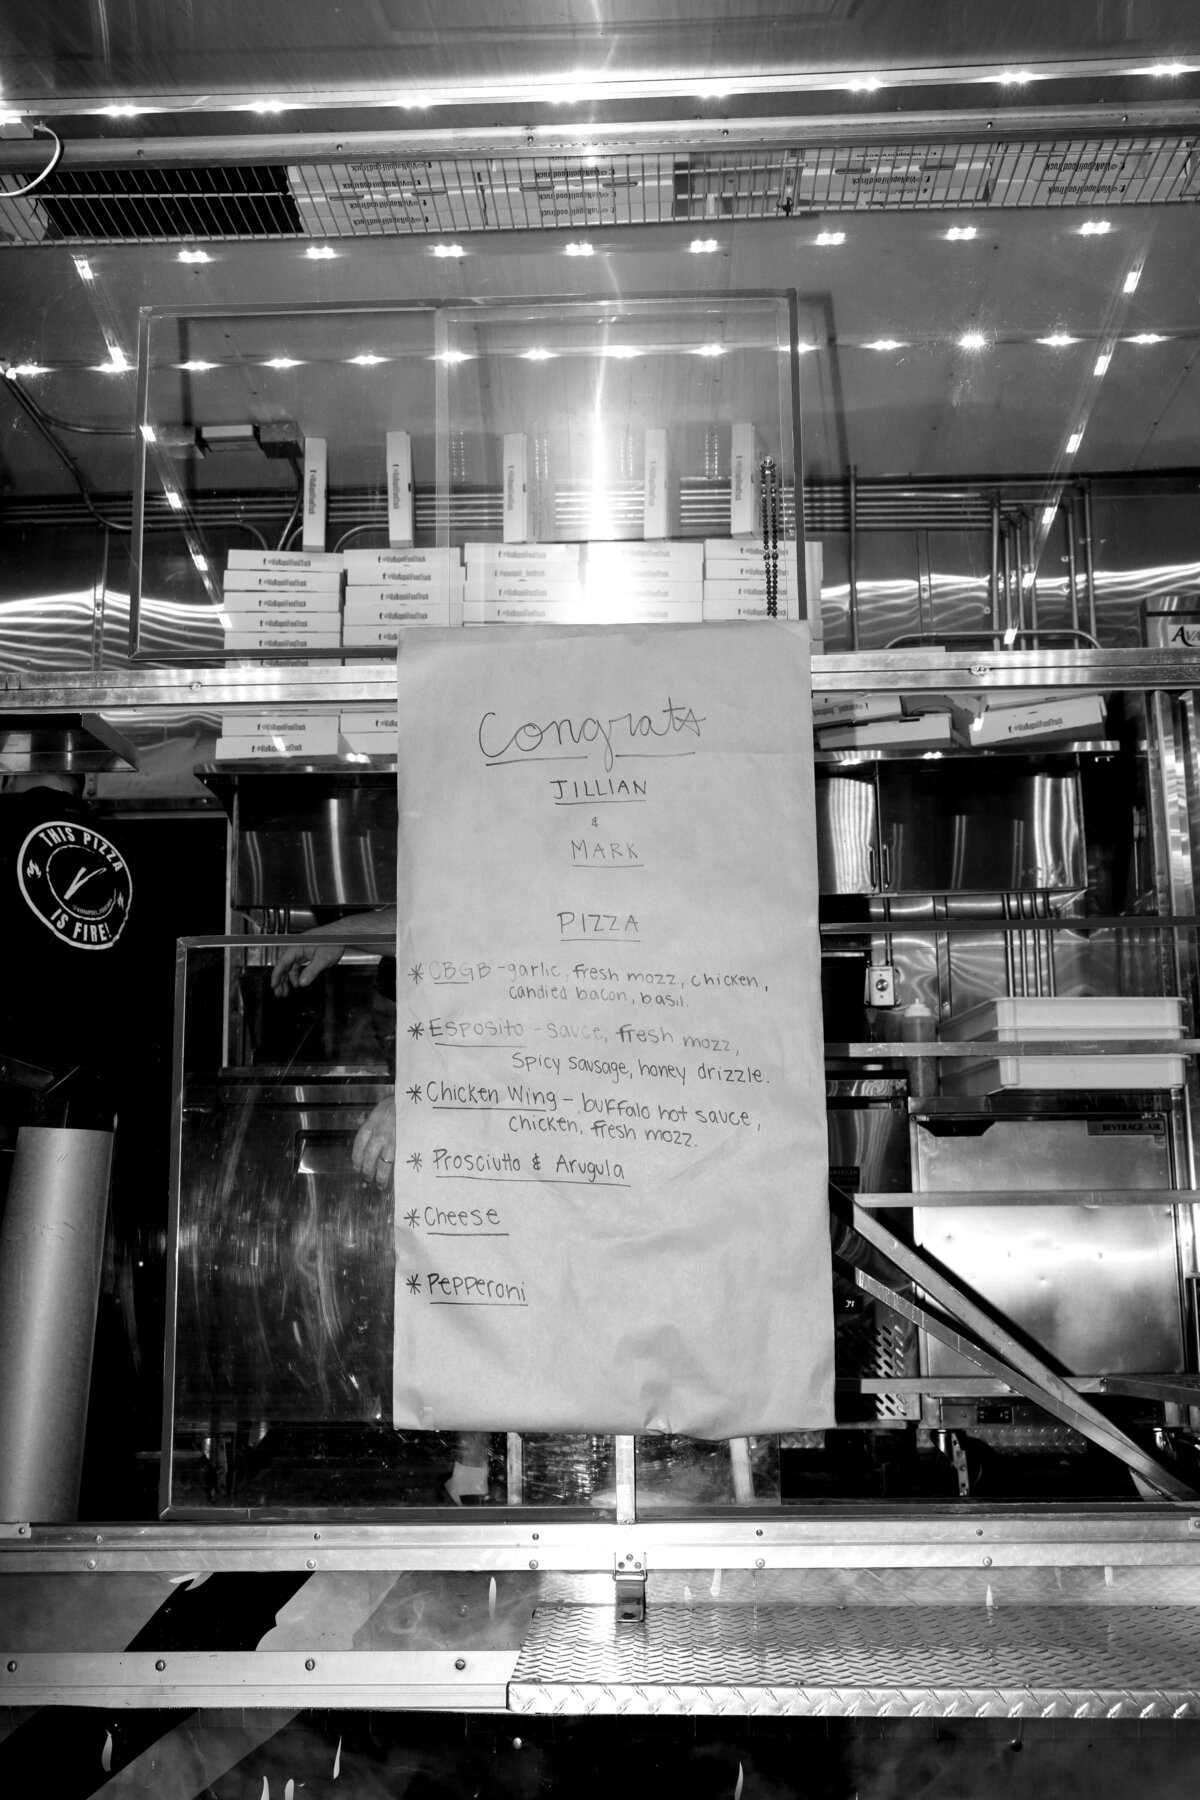 Congrats
JILLIAN
&
MARK
PIZZA
* CBGB - garlic, fresh mozz, chicken,
candied bacon, basil.
* Esposito - sauce, fresh mozz,
spicy sausage, honey drizzle.
* Chicken Wing - buffalo hot sauce,
chicken, fresh mozz.
* Prosciutto & Arugula
* Cheese
* Pepperoni
THIS PIZZA
IS FIRE!
BEVERAGE-AIR
f @ViaNapoliFoodTruck
f @ViaNapoliFoodTruck
f @ViaNapoliFoodTruck
f @ViaNapoliFoodTruck